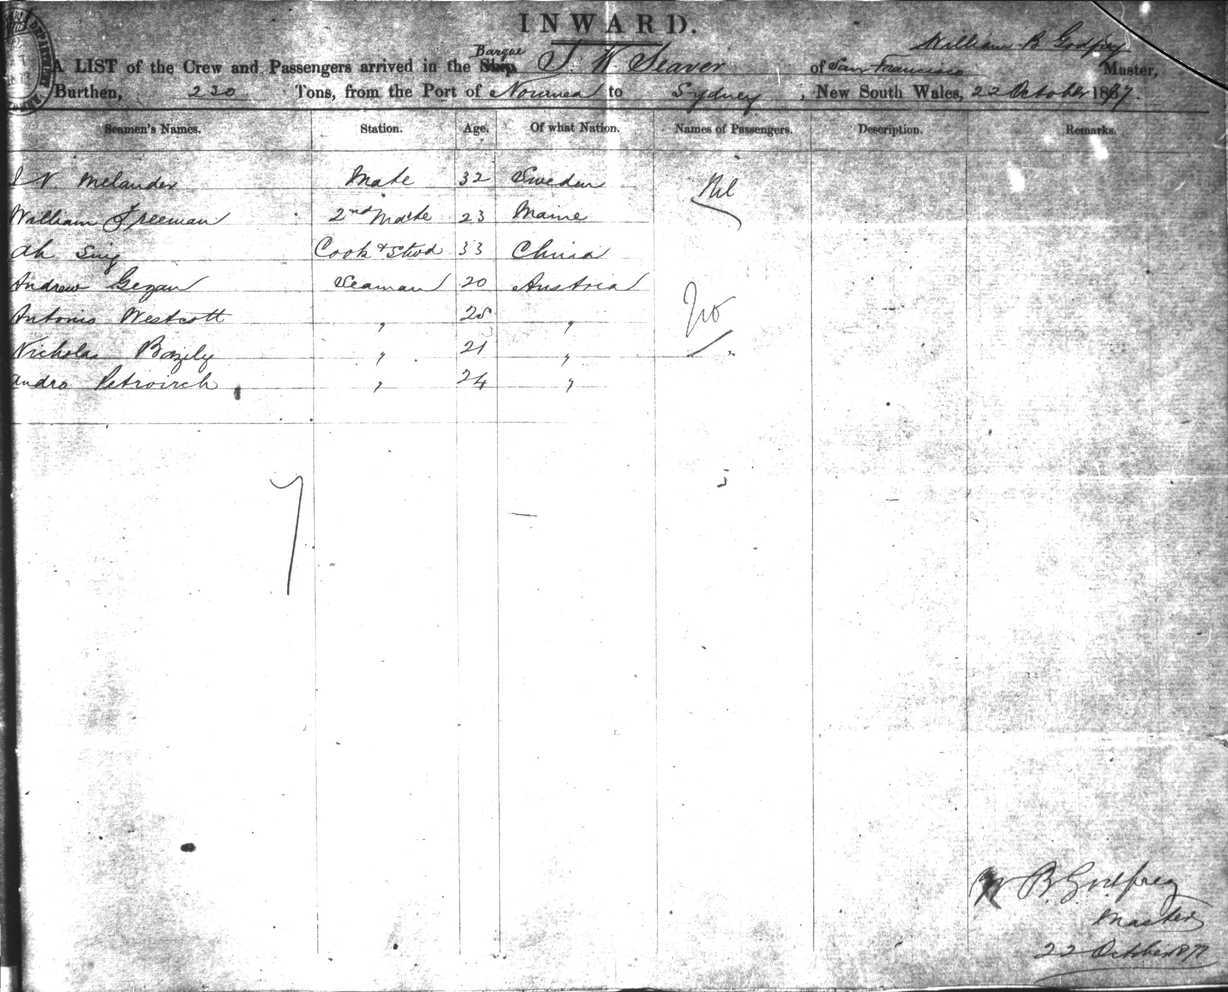 INWARD.
William B Godfrey
Barque
A LIST of the Crew and Passengers arrived in the Ship J W Seaver of San Francisco Master,
Burthen, 230 Tons, from the Port of Noumea to Sydney, New South Wales, 22 October 1877.
Seamen's Names. Station. Age. Of what Nation. Names of Passengers. Description. Remarks.
Melander Mate 32 Sweden Nil
William Freeman 2nd Mate 23 Maine
Ah Sing Cook & Stwd 33 China
Andrew Gezan Seaman 20 Austria
Antonio Westcott " 25 "
Nicholas Bazily " 21 "
Andro Petroirch " 24 "
7
W B Godfrey
Master
22 October 1877